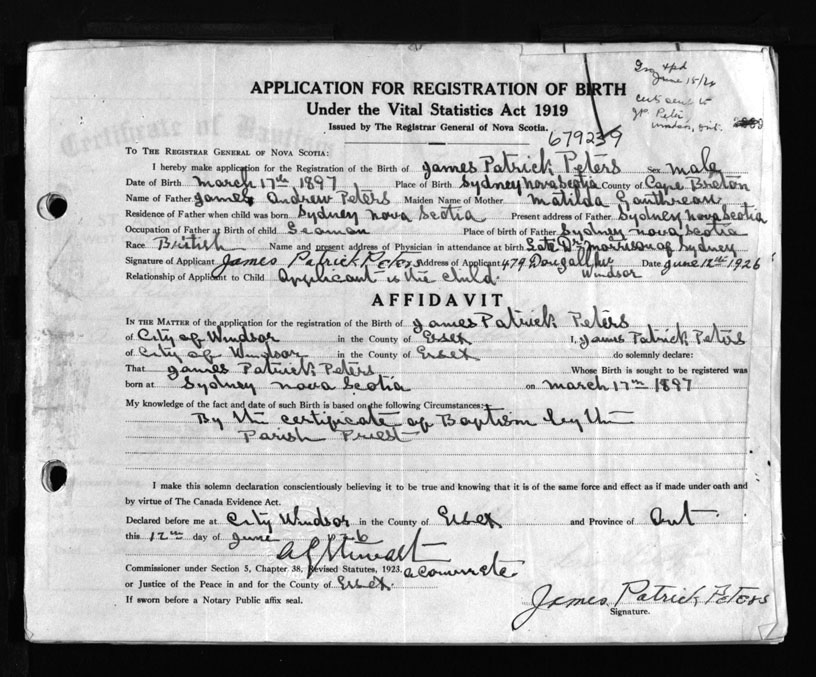 June 15/26
cert sent to
J.P. Peters
Windsor, Ont.
APPLICATION FOR REGISTRATION OF BIRTH
Under the Vital Statistics Act 1919
Issued by The Registrar General of Nova Scotia.
679239
TO THE REGISTRAR GENERAL OF NOVA SCOTIA:
I hereby make application for the Registration of the Birth of James Patrick Peters Sex male
Date of Birth March 17th 1897 Place of Birth Sydney Nova Scotia County of Cape Breton
Name of Father James Andrew Peters Maiden Name of Mother Matilda
Residence of Father when child was born Sydney Nova Scotia Present address of Father Sydney Nova Scotia
Occupation of Father at Birth of child Seaman Place of birth of Father Sydney Nova Scotia
Race British Name and present address of Physician in attendance at birth Late Dr Morrison of Sydney
Signature of Applicant James Patrick Peters Address of Applicant 479 Dougall Ave Windsor Date June 12th 1926
Relationship of Applicant to Child Applicant is the child.
AFFIDAVIT
IN THE MATTER of the application for the registration of the Birth of James Patrick Peters
of City of Windsor in the County of Essex I, James Patrick Peters
of City of Windsor in the County of Essex do solemnly declare:
That James Patrick Peters Whose Birth is sought to be registered was
born at Sydney Nova Scotia on March 17th 1897
My knowledge of the fact and date of such Birth is based on the following Circumstances:
By the certificate of Baptism by the
Parish Priest
I make this solemn declaration conscientiously believing it to be true and knowing that it is of the same force and effect as if made under oath and
by virtue of The Canada Evidence Act.
Declared before me at City Windsor in the County of Essex and Province of Ont
this 12th day of June
Commissioner under Section 5, Chapter 38, Revised Statutes, 1923.
or Justice of the Peace in and for the County of Essex
If sworn before a Notary Public affix seal.
James Patrick Peters
Signature.